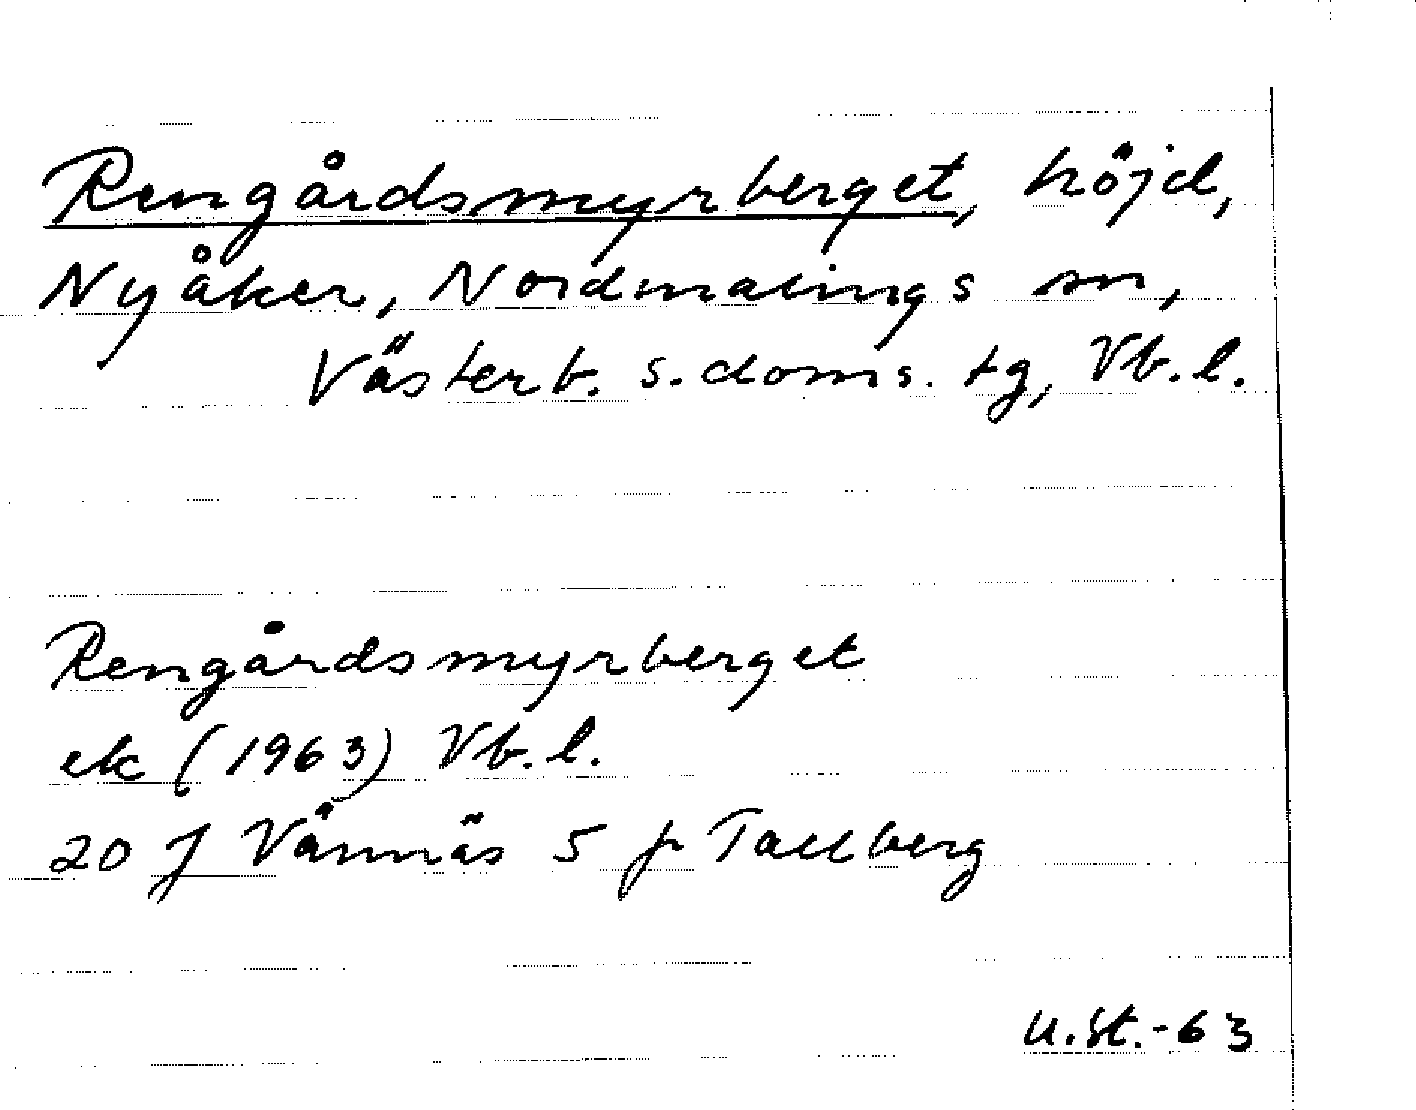 Rengårdsmyrberget, höjd,
Nyåker, Nordmalings sn,
Västerb. s. doms. tg, Vb. l.
Rengårdsmyrberget
ek (1963) Vb. l.
20 J Vännäs 5 f Tallberg
U.St.-63